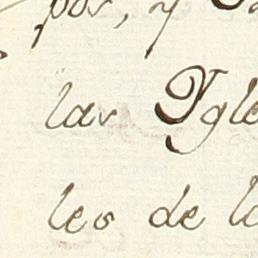 por, y
las Ygle
les de lo